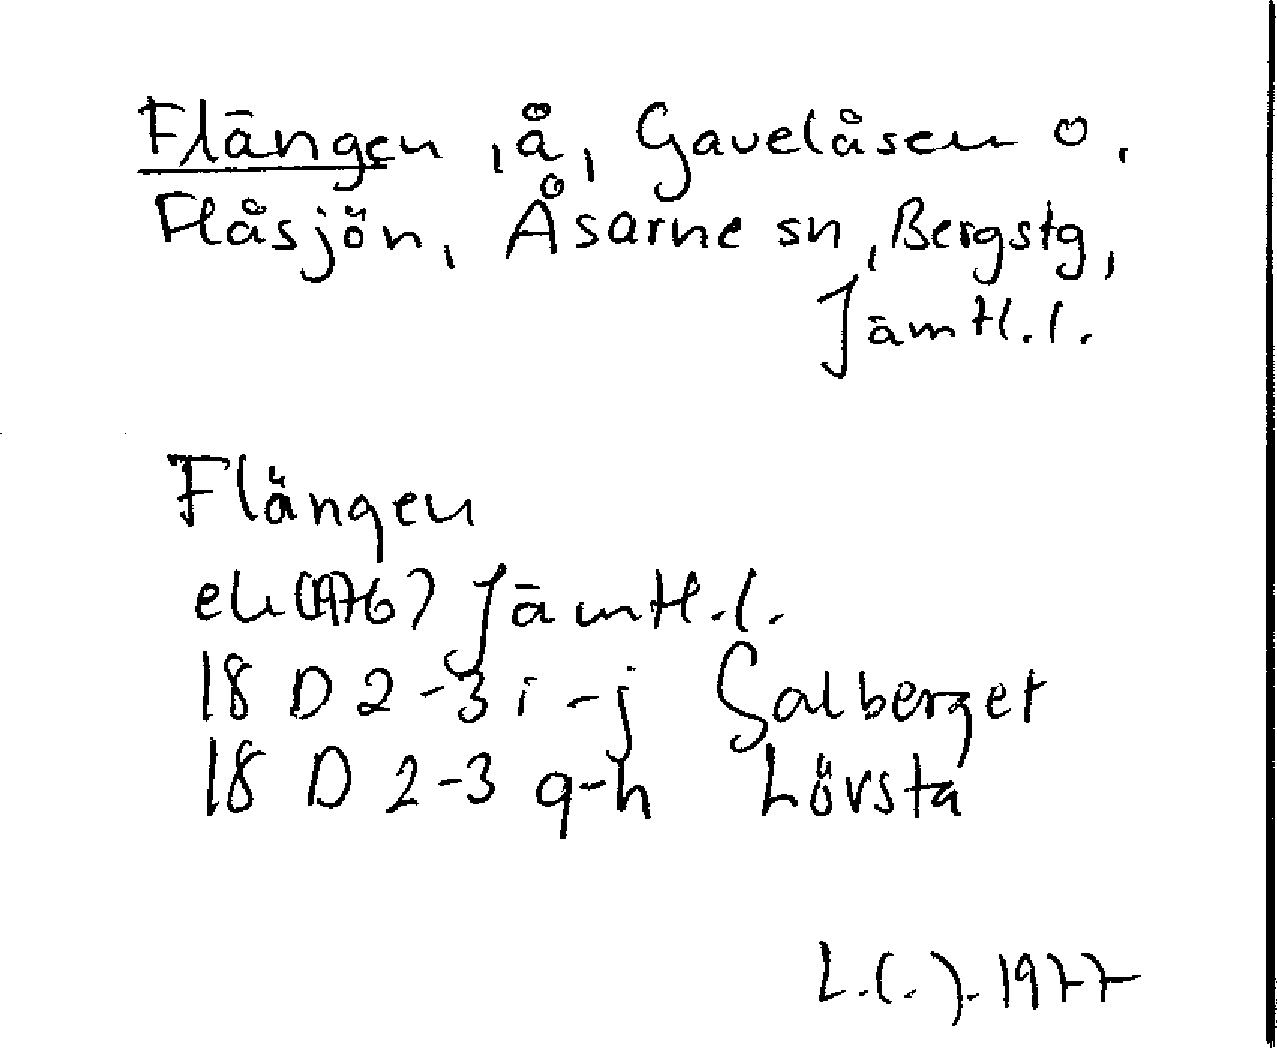 Flängen, å, Gaveläsen o.
Flåsjön, Åsarne sn, Bergstg,
Jämtl.l.
Flängen
ek (1976) Jämtl.l.
18 D 2-3 i-j Galberget
18 D 2-3 g-h Lövsta
L.C.J. 1977